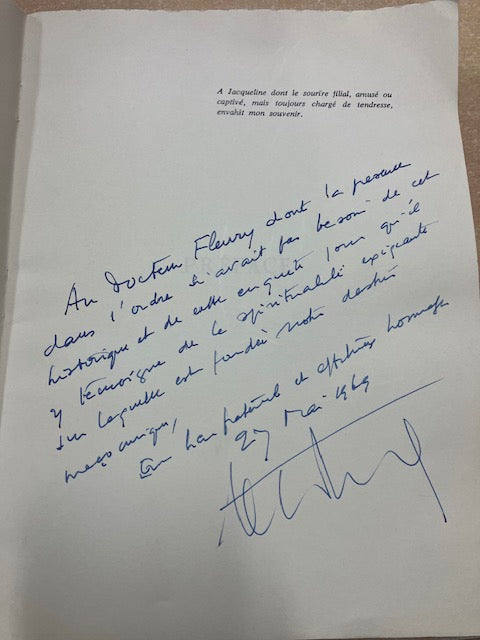 A Jacqueline dont le sourire filial, amusé ou
captivé, mais toujours chargé de tendresse,
envahit mon souvenir.
Au Docteur Fleury dont la présence
dans l'ordre n'avait pas besoin de cet
historique et de cette enquête pour qu'il
y témoigne de la spiritualité exigeante
sur laquelle est fondée notre destin
maçonnique,
En hommage
27 Mai 1969